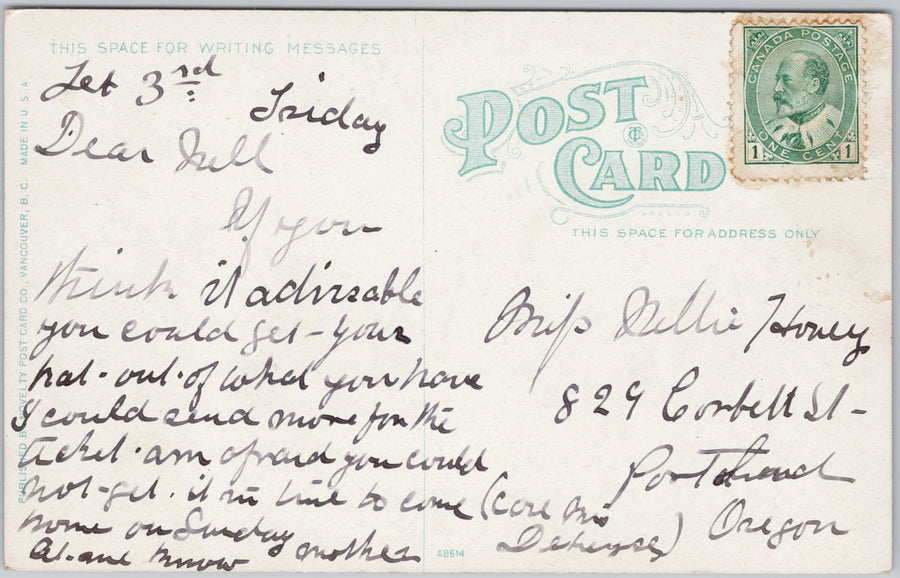 THIS SPACE FOR WRITING MESSAGES
3rd
Friday
Dear Nell
If you
think it advisable
you could get - your
hat - out of what you have
I could send more for the
ticket. am afraid you could
not - get. it in time to come
home on Sunday
know mother
PUBLISHED BY NOVELTY POST CARD CO., VANCOUVER, B. C. MADE IN U. S. A
POST
CARD
CANADA POSTAGE
1 ONE CENT 1
THIS SPACE FOR ADDRESS ONLY
Miss Nellie Honey
829 Corbett St -
Portland
Oregon
(Care Mrs
A8514